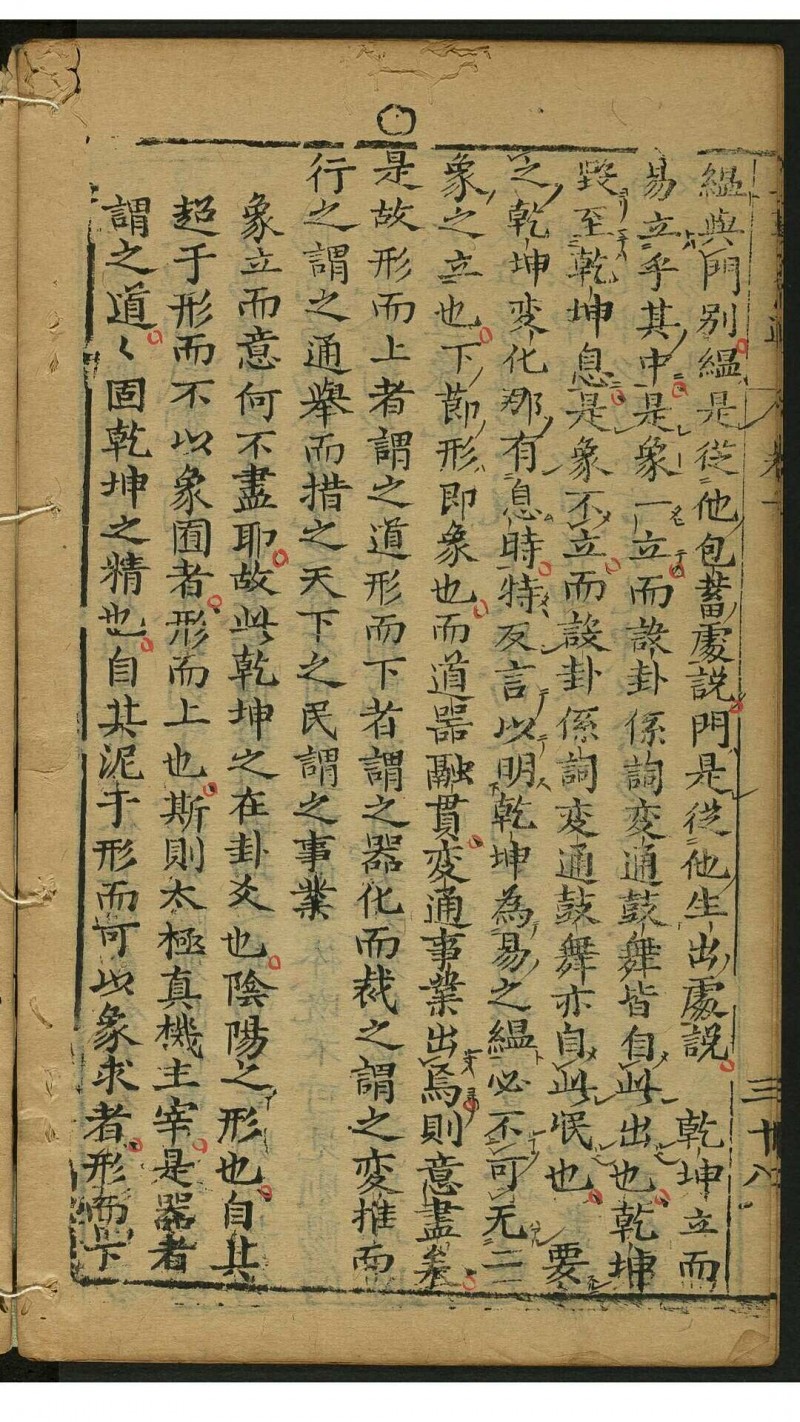 縕與門別縕是從他包蓄處説門是從他生出處説　乾坤立而
易立乎其中是象一立而設卦係詞变通鼓舞皆自此出也乾坤
毀至乾坤息是象不立而設卦係詞变通鼓舞亦自此泯也　要
之乾坤变化那有息時特反言以明乾坤為易之縕必不可无二
象之立也下節形即象也而道器融貫变通事業出焉則意盡矣
是故形而上者謂之道形而下者謂之器化而裁之謂之变推而
行之謂之通舉而措之天下之民謂之事業
象立而意何不盡耶故此乾坤之在卦爻也陰陽之形也自其
超于形而不以象囿者形而上也斯則太極真機主宰是器者
謂之道〻固乾坤之精也自其泥于形而可以象求者形而下
三十八